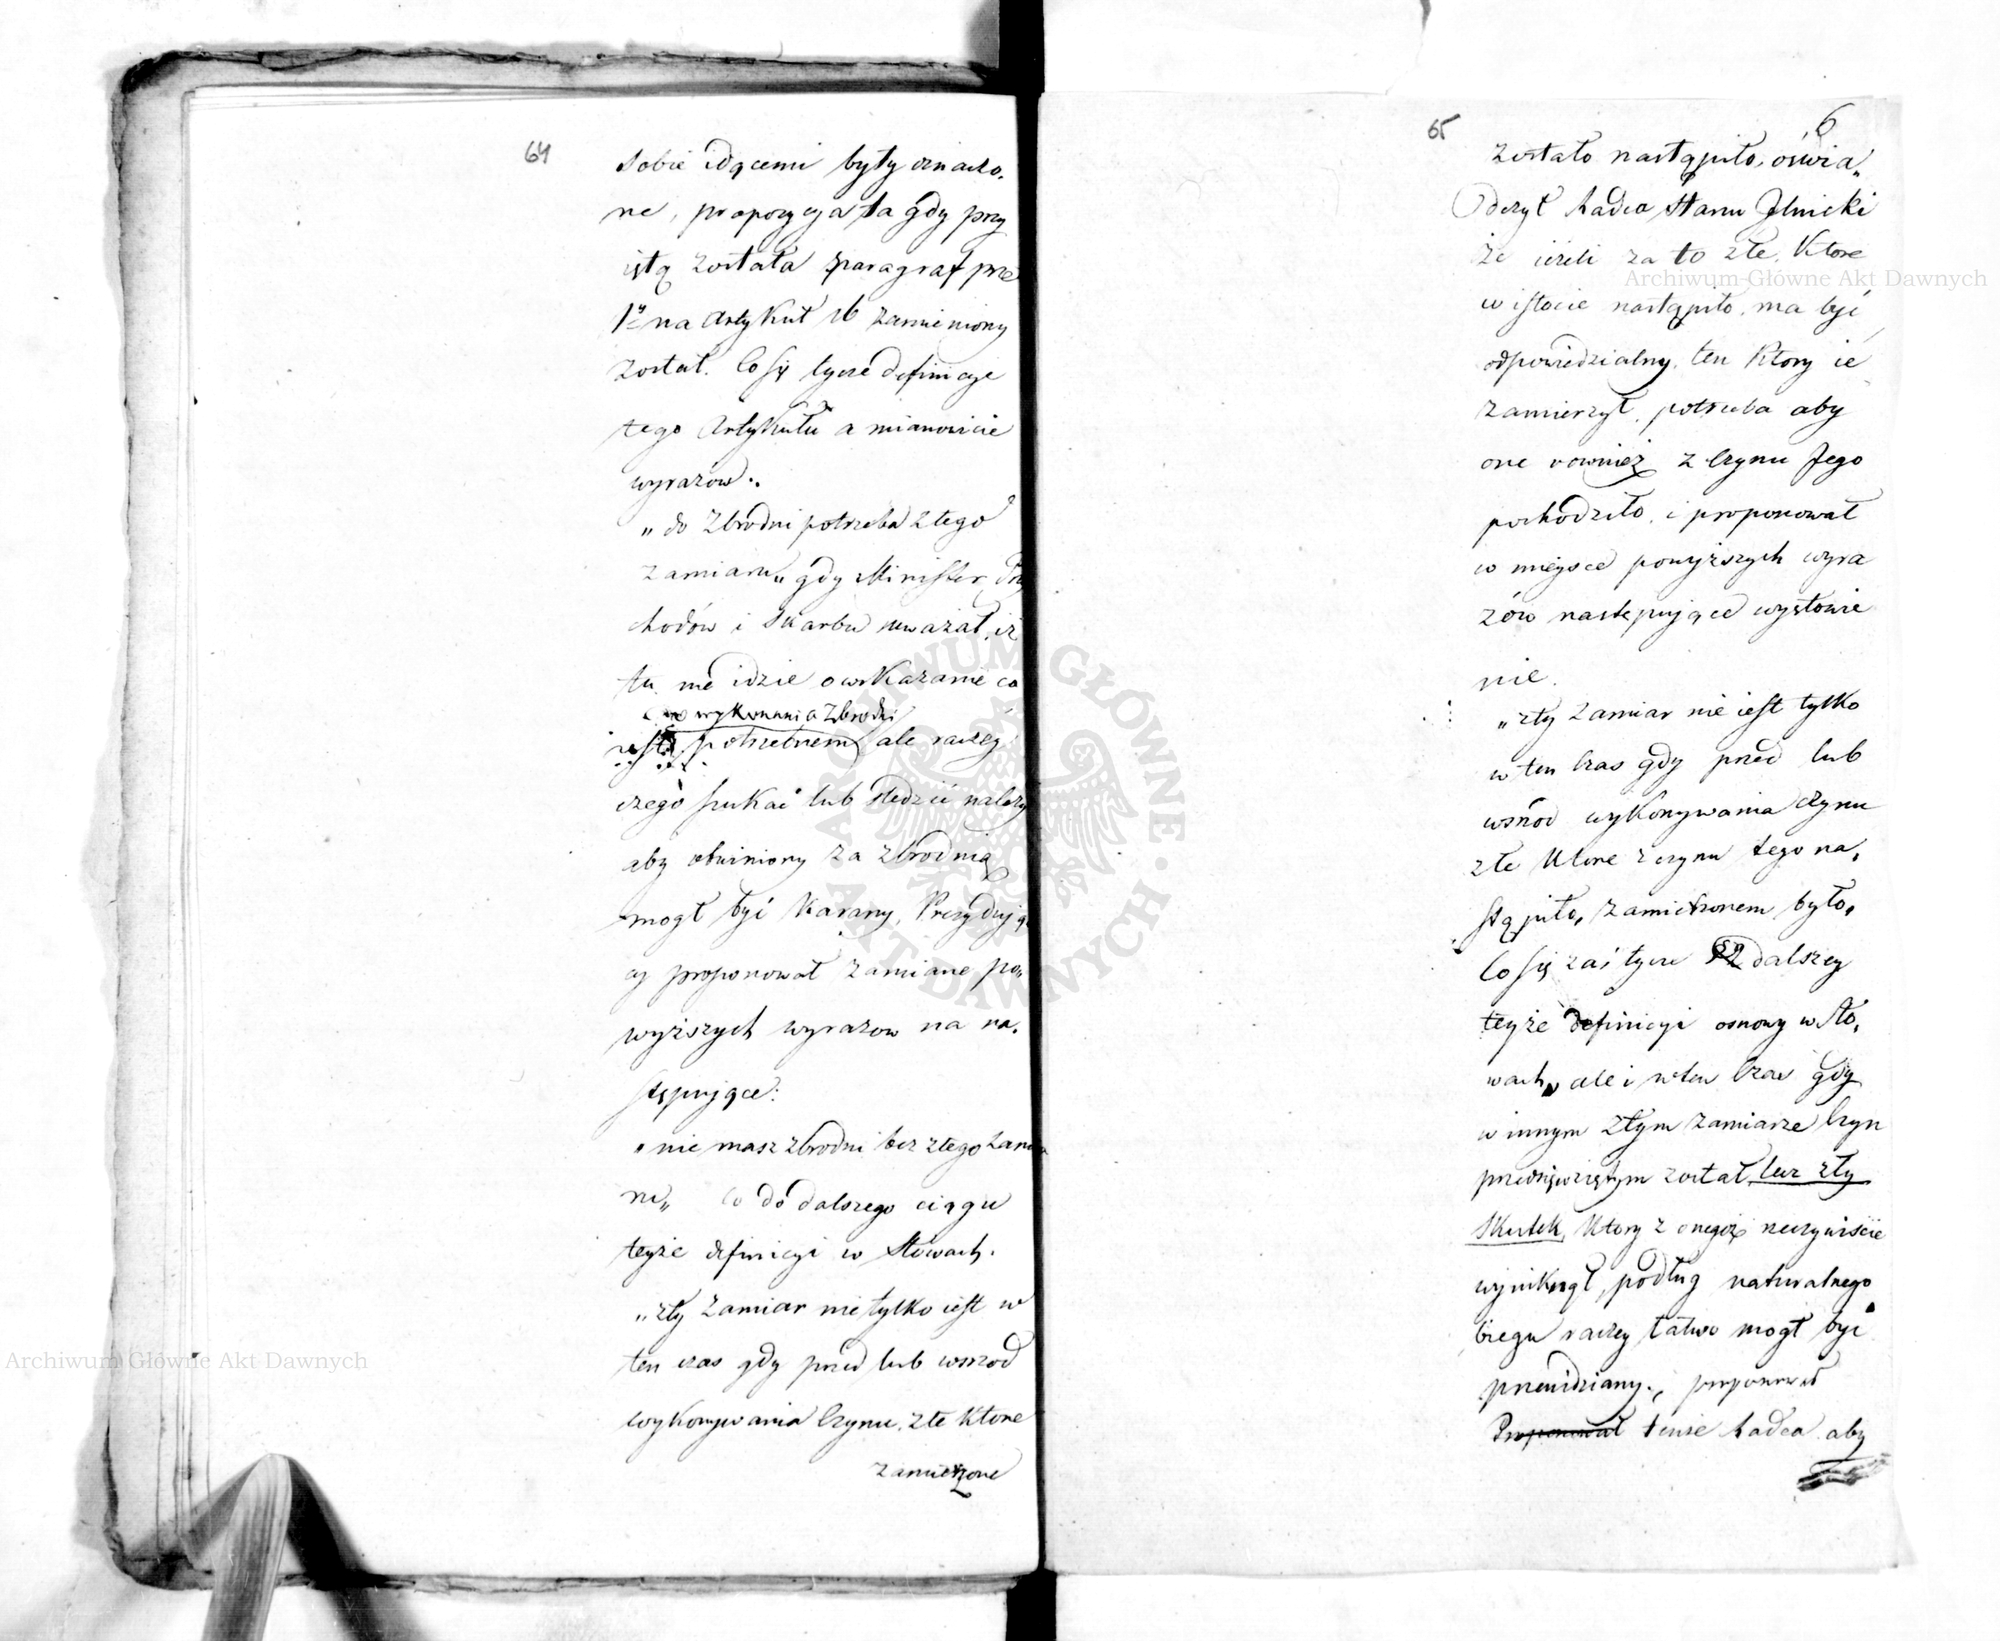 64
sobie idącemi były oznaczo.
ne, propozycya ta gdy przy
iętą została paragraf prze
1y na Artykuł 16 zamieniony
został. Co się tycze definicye
tego Artykułu a mianowicie
wyrazow.
„do Zbrodni potrzeba złego
zamiaru„ gdy Minister Przy
chodów i Skarbu uważał, iż
tu nie idzie o wskazanie co
do wykonania Zbrodni
jest potrzebnem, ale raczey
czego szukać lub śledzić należy
aby obwiniony za zbrodnię
mogł być karany, Prezyduią
cy proponował zamianę po„
wyższych wyrazow na na„
stępuiące:
„nie masz zbrodni bez złego zamia
ru„ Co do dalszego ciągu
teyże definicyi w słowach.
„zły zamiar nie tylko iest w
ten czas gdy przed lub wsrzod
wykonywania Czynu, złe ktore
zamierzone
65
6
zostało nastąpiło, oświa„
dczył Radca Stanu Zelnicki
że ieżeli za to złe, ktore
w istocie nastąpiło, ma być
odpowiedzialny, ten ktory ie
zamierzył, potrzeba aby
one rownież z Czynu Jego
pochodziło, i proponował
w mieysce powyższych wyra
zów następuiące wysłowie
nie.
„zły zamiar nie iest tylko
w ten Czas gdy przed lub
wsrzod wykonywania czynu
złe ktore z czynu tego na„
stąpiło, zamierzonem było„
Co się zaś tycze dalszey
teyże definicyi osnowy w sło„
wach„ ale i w ten Czas gdy
w innym złym zamiarze Czyn
przedsięwziętym został, lecz zły
skutek, ktory z onegoż rzeczywiście
wyniknął, podług naturalnego
biegu rzeczy łatwo mogł być
przewidziany„ proponował
Proponował tenże Radca aby
Archiwum Główne Akt Dawnych
Archiwum Główne Akt Dawnych
ARCHIWUM GŁÓWNE · AKT DAWNYCH ·